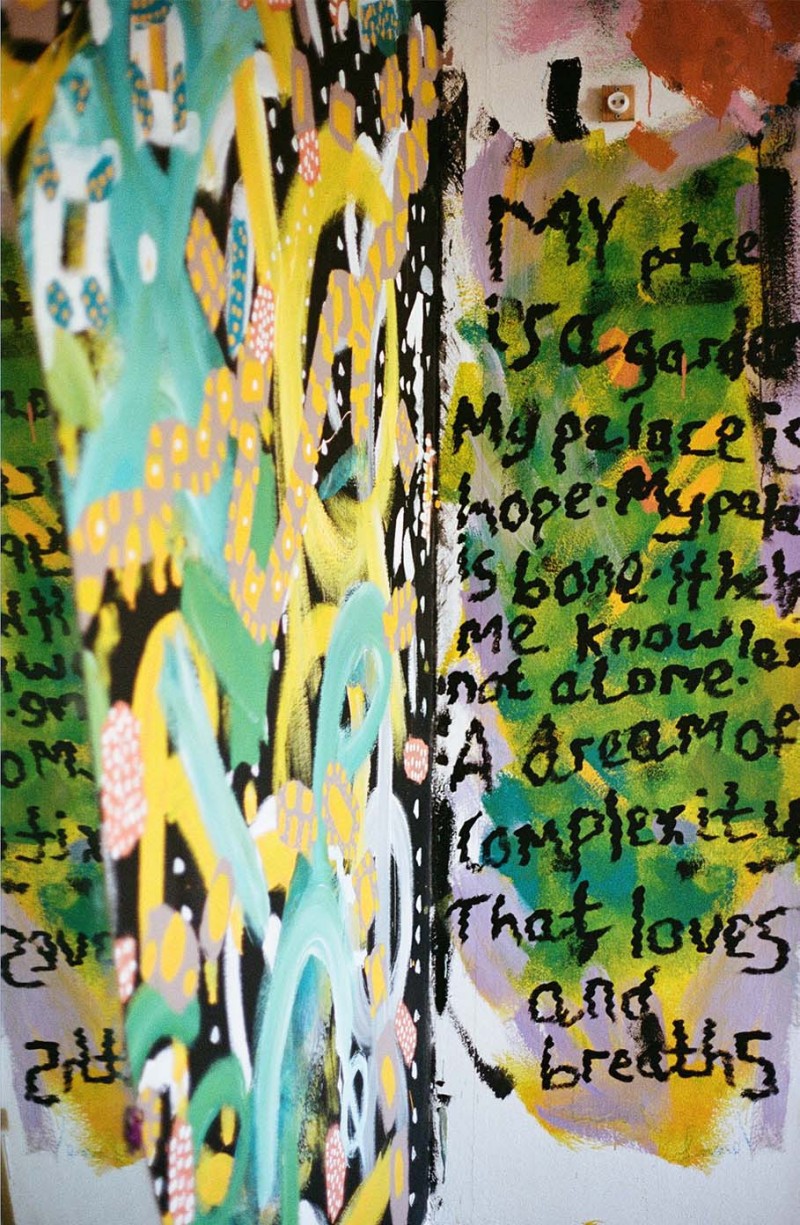 My palace
is a garden
My palace is
hope. My pala
is bone. It help
me know I am
not alone.
A dream of
Complexity
That loves
and
breaths